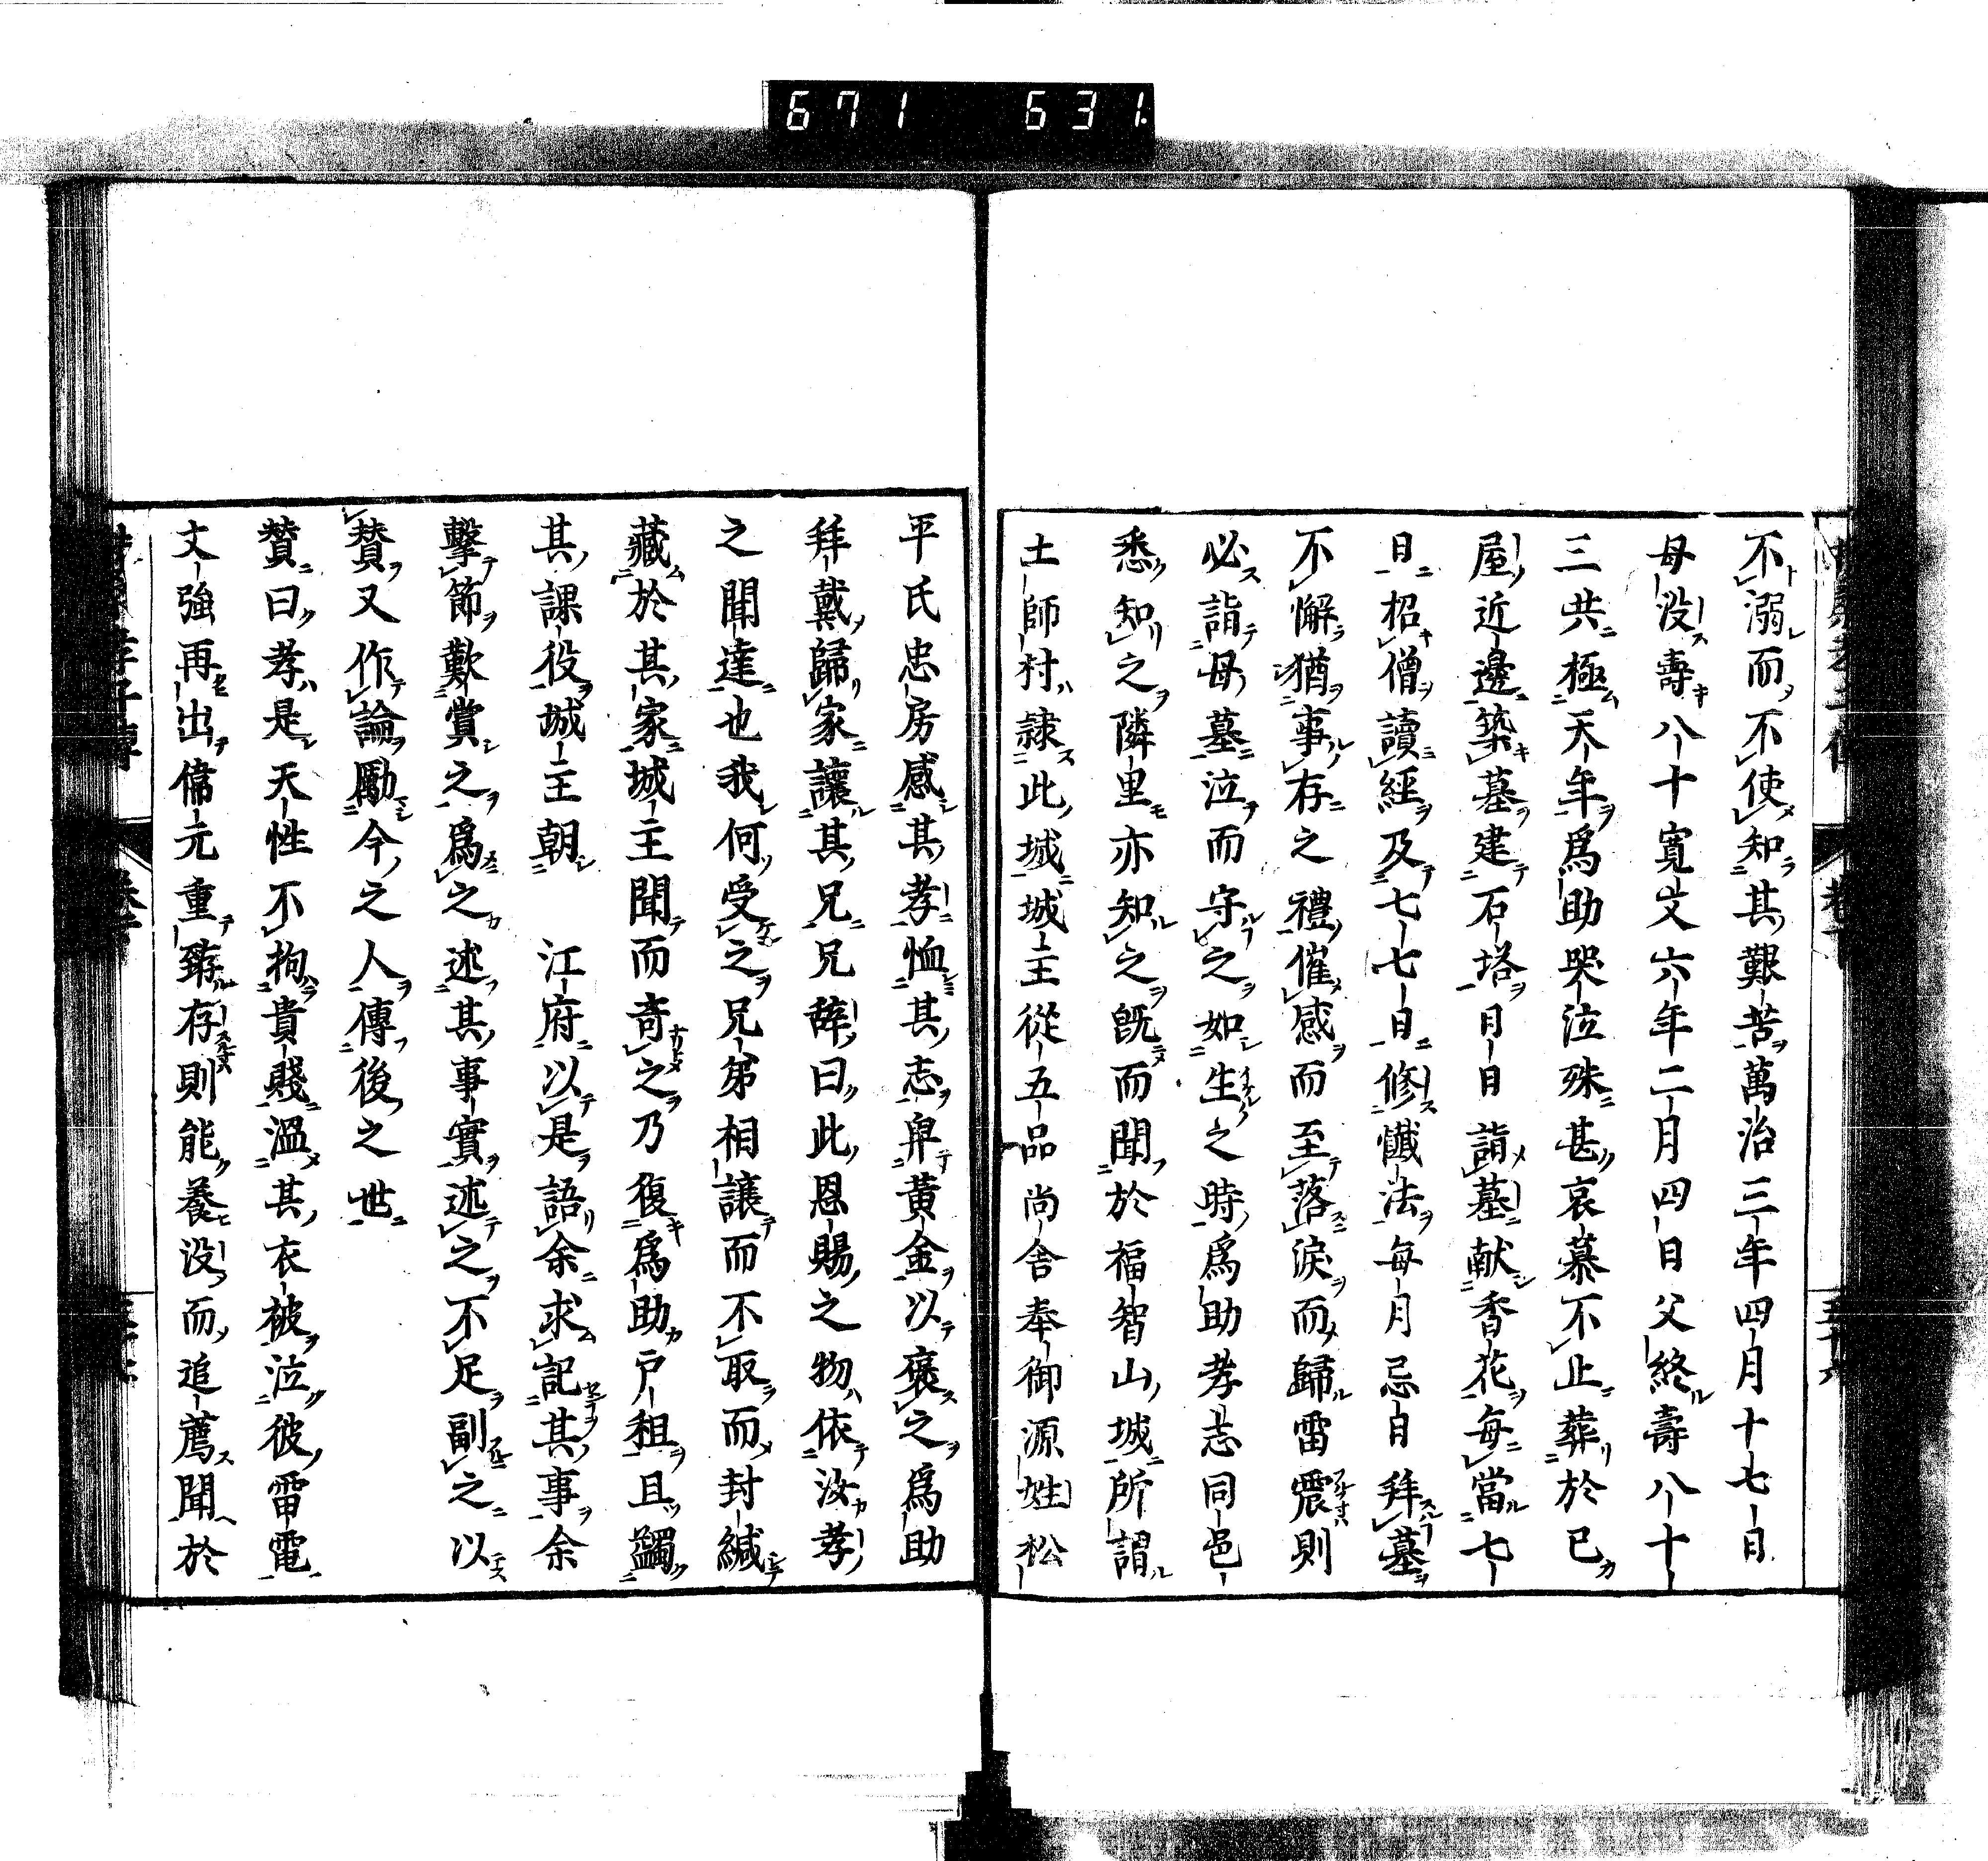 671 631
不溺而不使知其艱苦萬治三年四月十七日
母没壽八十寛文六年二月四日父終壽八十
三共極天年爲助哭泣殊甚哀慕不止葬於已
屋近邊築墓建石塔日日詣墓献香花毎當七
日招僧讀經及七七日修懺法毎月忌日拜墓
不懈猶事存之禮催感而至落淚而歸雷震則
必詣母墓泣而守之如生之時爲助孝志同邑
悉知之隣里亦知之既而聞於福智山城所謂
土師村隷此城城主從五品尚舎奉御源姓松
平氏忠房感其孝恤其志舁黄金以褒之爲助
拜戴歸家讓其兄兄辭曰此恩賜之物依汝孝
之聞達也我何受之兄弟相讓而不取而封緘
藏於其家城主聞而奇之乃復爲助戸租且蠲
其課役城主朝　江府以是語余求記其事余
擊節歎賞之爲之述其事實述之不足副之以
賛又作論勵今之人傳後之世
賛曰孝是天性不拘貴賤溫其衣被泣彼雷電
丈強再出偉元重臻存則能養没而追薦聞於